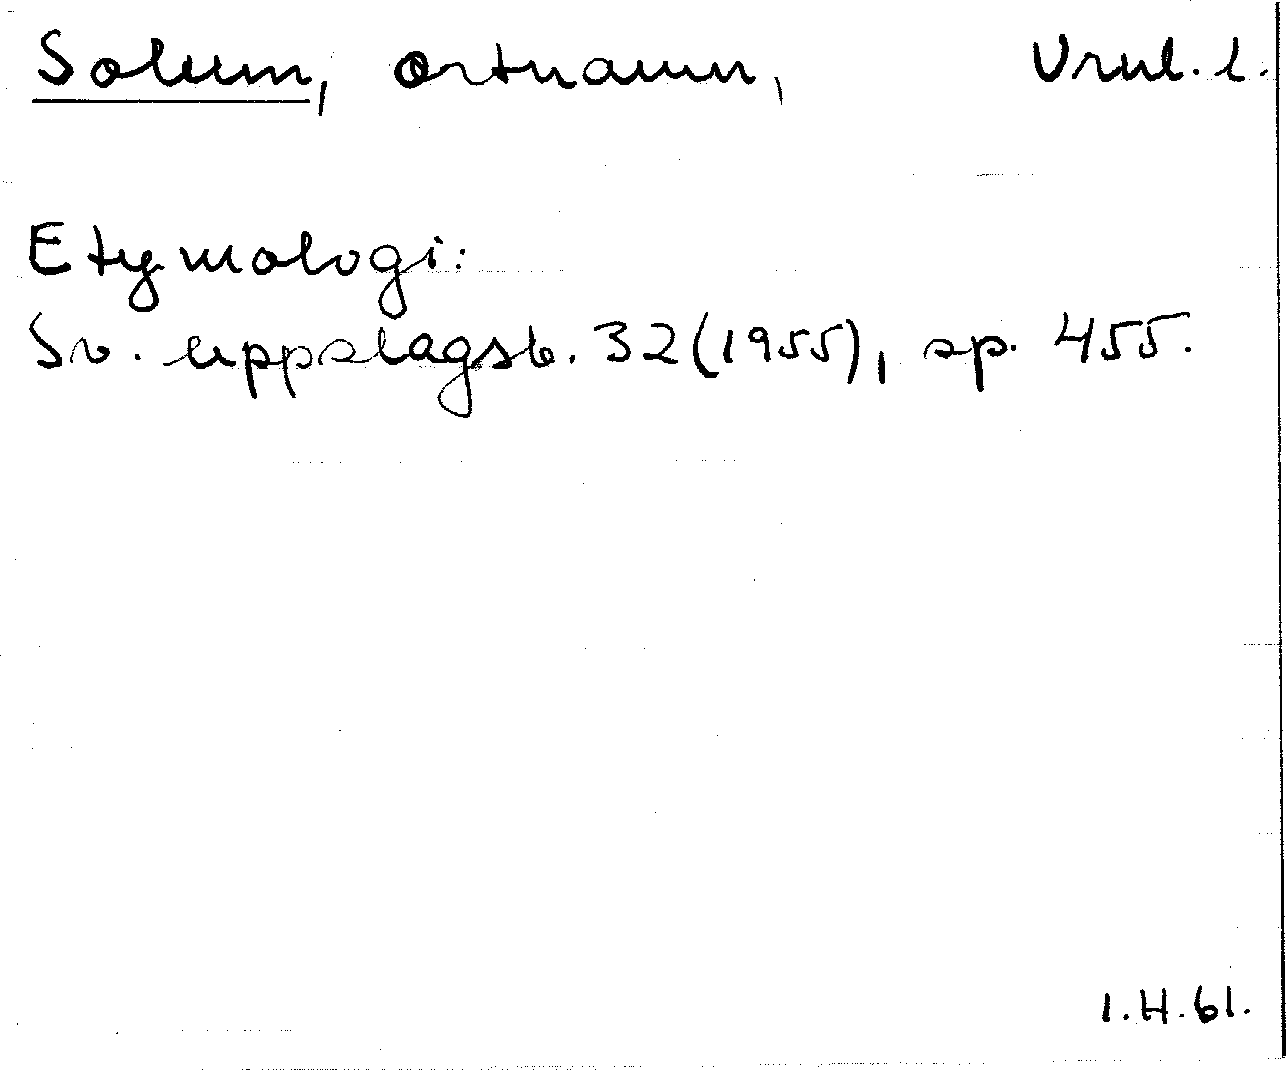 Solum, ortnamn, Vrml. l.
Etymologi:
Sv. uppslagsb. 32 (1955), sp. 455.
I.H.61.